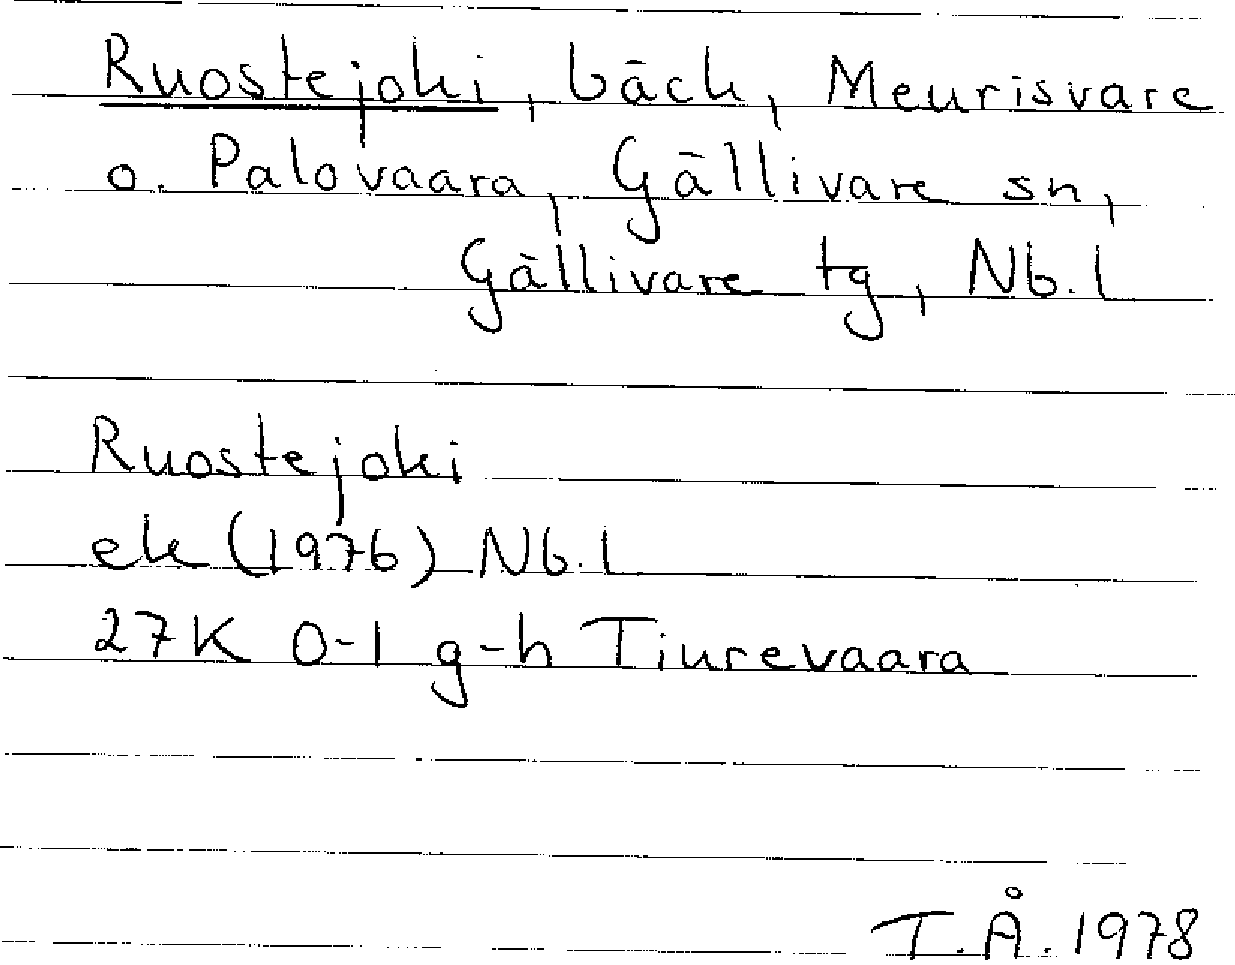 Ruostejoki, bäck, Meurisvare
o. Palovaara, Gällivare sn,
Gällivare tg, Nb. l
Ruostejoki
ek (1976) Nb. l
27K 0-1 g-h Tiurevaara
T.Å. 1978